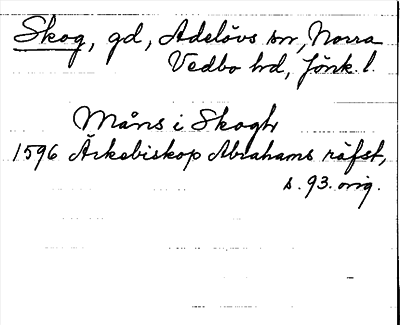 Skog, gd, Adelövs sn, Norra
Vedbo hd, Jönk. l.
Måns i Skogh
1596 Ärkebiskop Abrahams räfst,
s. 93. orig.